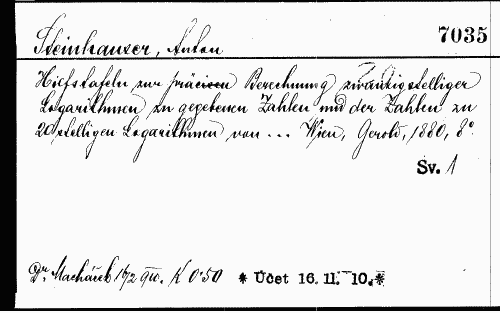 7035
Steinhauser, Anton
Hilfstafeln zur präcisen Berechnung zwanzigstelliger
Logarithmen zu gegebenen Zahlen und der Zahlen zu
20stelligen Logarithmen von ... Wien, Gerold, 1880, 8°.
Sv. 1
Dr. Macháček 16/2 910. K 0·50 * Účet 16. II. 10. *